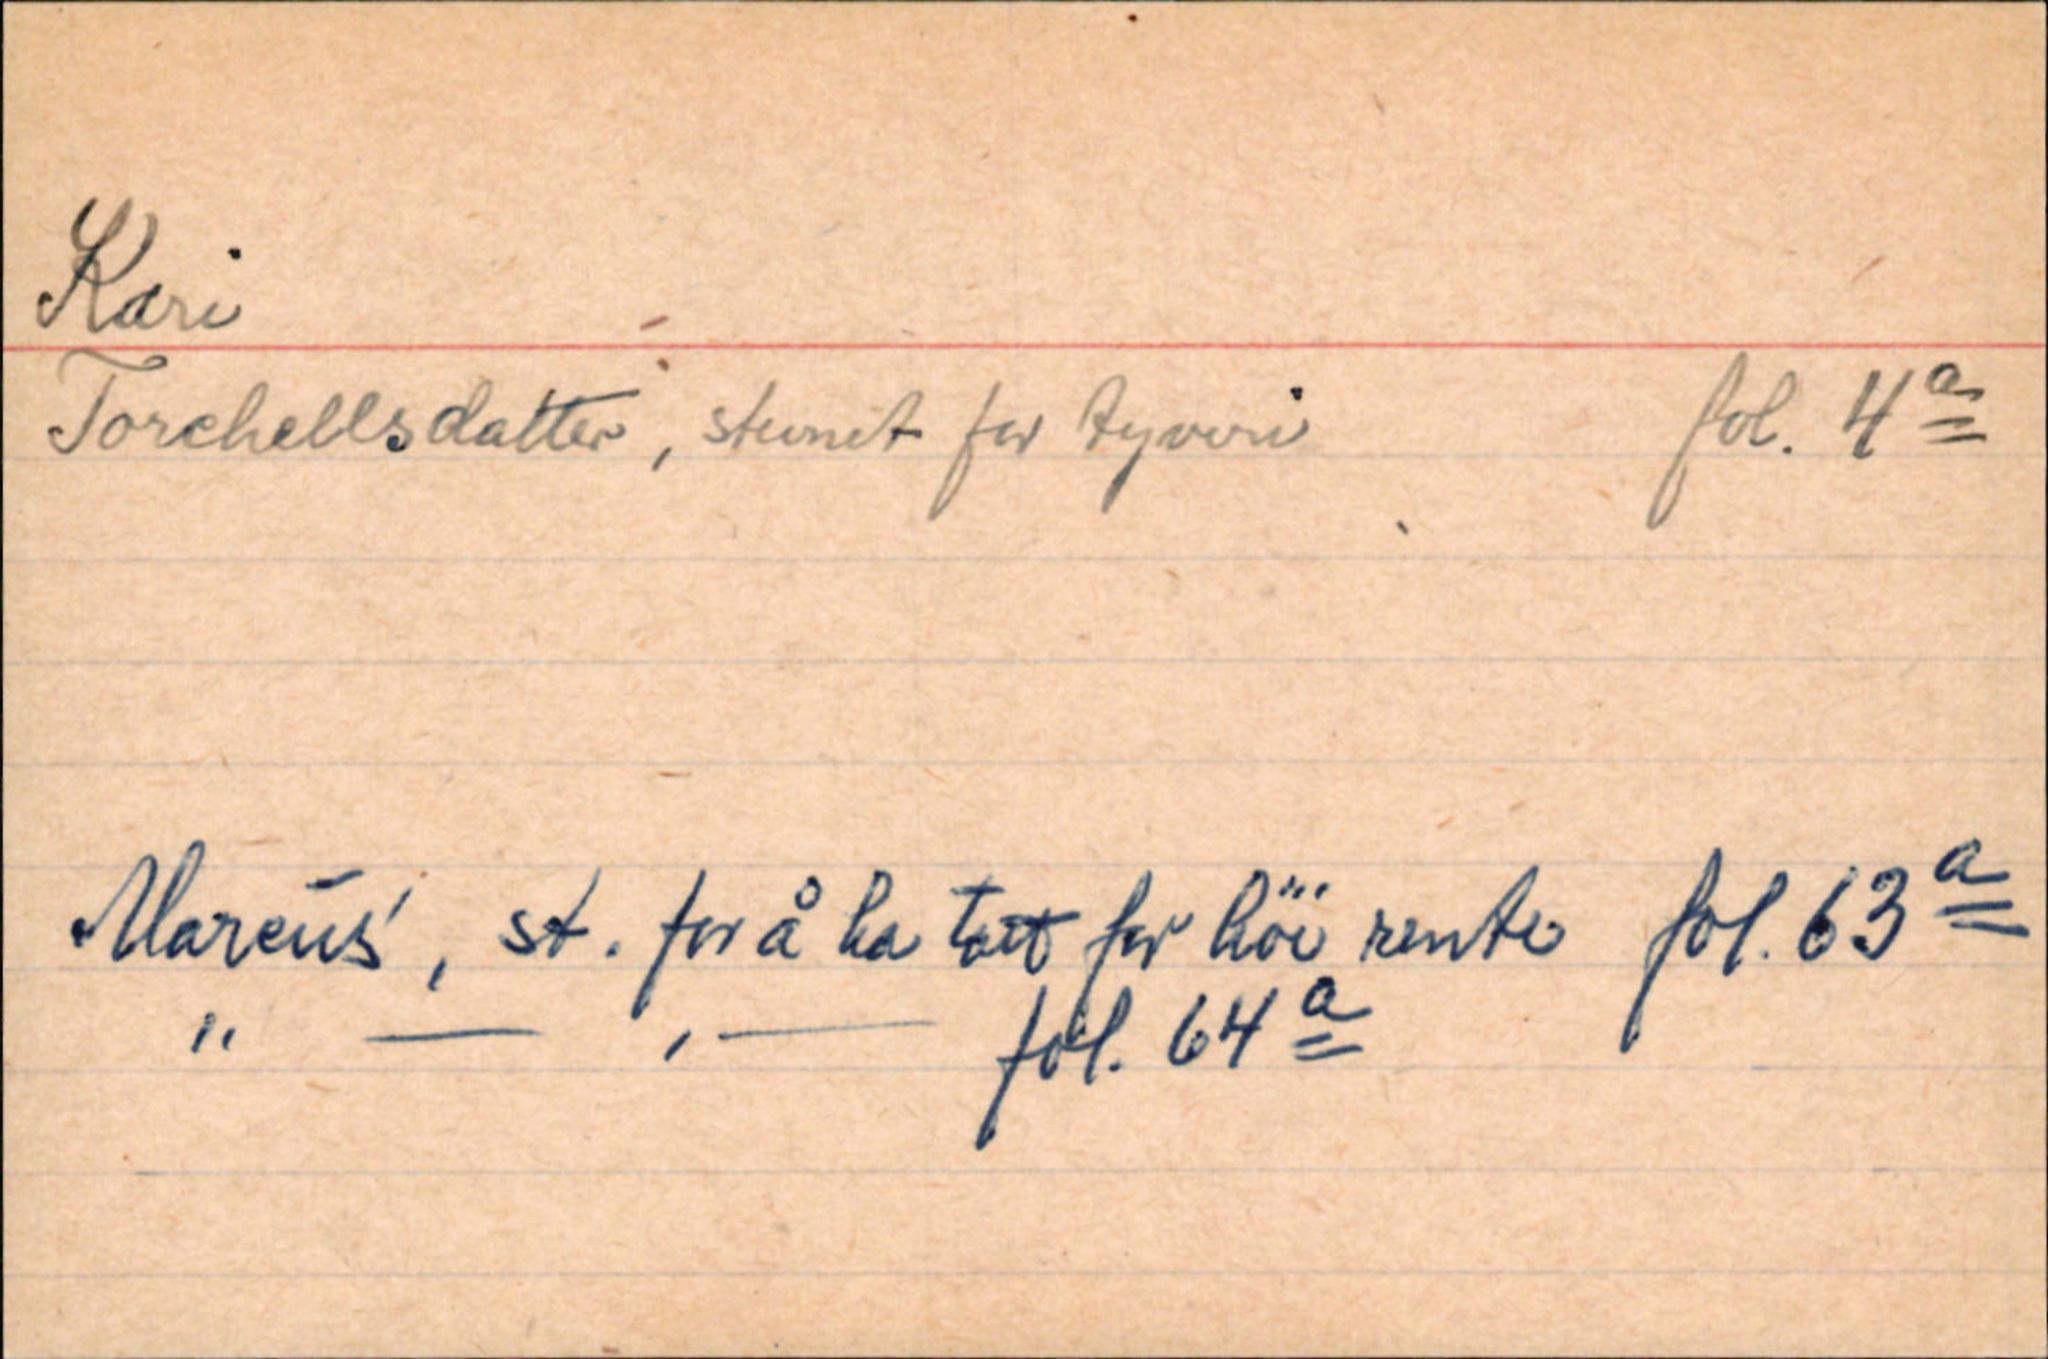 Kari
Torchellsdatter, stevnet for tyveri fol. 4a
Marcus, st. for å ha tatt for höi rente fol. 63a
" — , — fol. 64a